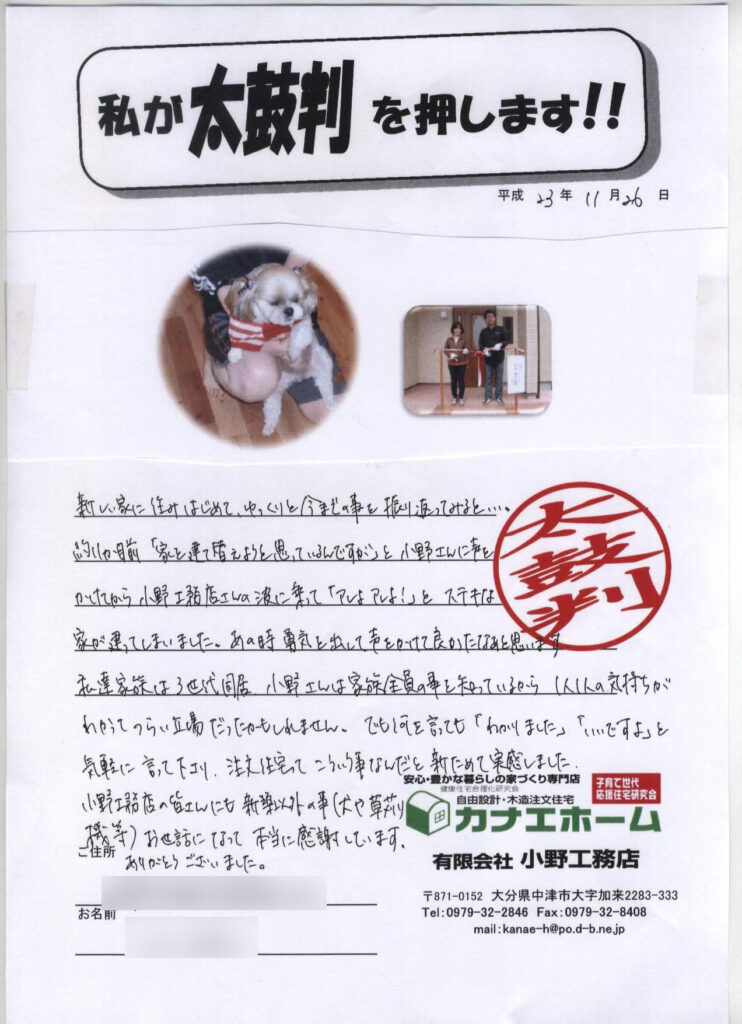 私が太鼓判を押します!!
平成 23年 11月 26日
新しい家に住みはじめて、ゆっくりと今までの事を振り返ってみると…。
約1か月前「家を建て替えようと思っているんですが」と小野さんに声を
かけてから小野工務店さんの波に乗って「アレよアレよ!」とステキな
家が建ってしまいました。あの時勇気を出して声をかけて良かったなあと思います
私達家族は3世代同居 小野さんは家族全員の事を知っているから 1人1人の気持ちが
わかってつらい立場だったかもしれません。でも何を言っても「わかりました」「いいですよ」と
気軽に言って下り、注文住宅ってこういう事なんだと新ためて実感しました。
小野工務店の皆さんにも新築以外の事(犬や草刈
機等)お世話になって本当に感謝しています。
ありがとうございました。
太鼓判
安心・豊かな暮らしの家づくり専門店
健康住宅合理化研究会
子育て世代
応援住宅研究会
自由設計・木造注文住宅
カナエホーム
有限会社 小野工務店
〒871-0152 大分県中津市大字加来2283-333
Tel:0979-32-2846 Fax:0979-32-8408
mail:kanae-h@po.d-b.ne.jp
ご住所
お名前